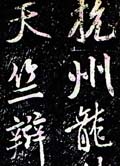 杭州龍
天竺辯